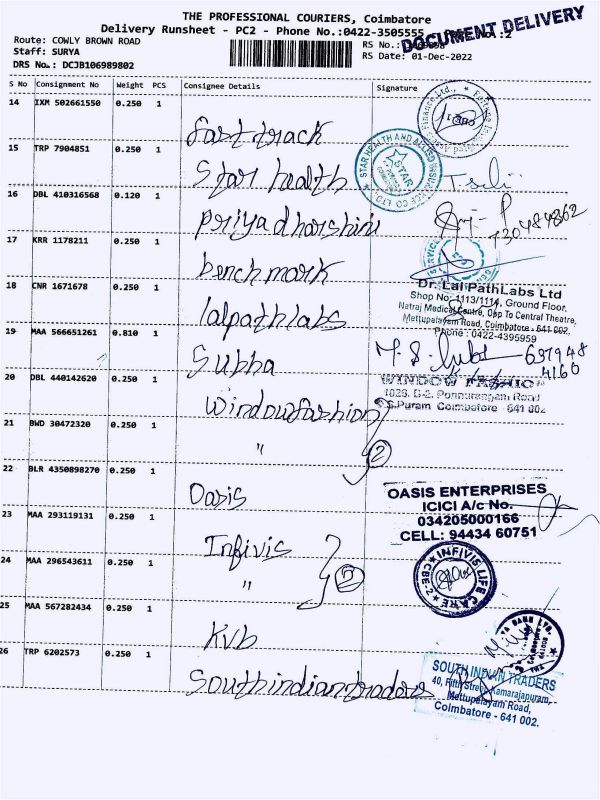 THE PROFESSIONAL COURIERS, Coimbatore
Delivery Runsheet - PC2 - Phone No.:0422-3505555
DOCUMENT DELIVERY
Route: COWLY BROWN ROAD
Staff: SURYA
DRS No.: DCJB106989802
RS No.:
RS Date: 01-Dec-2022
S No Consignment No Weight PCS Consignee Details Signature
14 IXM 502661550 0.250 1 fast track
15 TRP 7904851 0.250 1 Star health
STAR HEALTH AND ALLIED INSURANCE CO LTD
STAR
16 DBL 410316568 0.120 1 Priyadharshini
17 KRR 1178211 0.250 1 bench mark
18 CNR 1671678 0.250 1 lalpathlabs
Dr. Lal PathLabs Ltd
Shop No: 1113/1114, Ground Floor,
Natraj Medical Centre, Opp To Central Theatre,
Mettupalayam Road, Coimbatore - 641 002.
Phone : 0422-4395959
19 MAA 566651261 0.810 1 Subha
20 DBL 440142620 0.250 1 Windowfashion
WINDOW FASHION
S.Puram Coimbatore - 641 002
21 BWD 30472320 0.250 1 "
2
22 BLR 4350898270 0.250 1 Oasis
OASIS ENTERPRISES
ICICI A/c No.
034205000166
CELL: 94434 60751
23 MAA 293119131 0.250 1 Infivis
24 MAA 296543611 0.250 1 "
2
INFIVIS LIFE CARE
CBE-2
25 MAA 567282434 0.250 1 KVb
26 TRP 6202573 0.250 1 Southindiantraders
SOUTH INDIAN TRADERS
40, Fifth Street, Kamarajapuram,
Mettupalayam Road,
Coimbatore - 641 002.